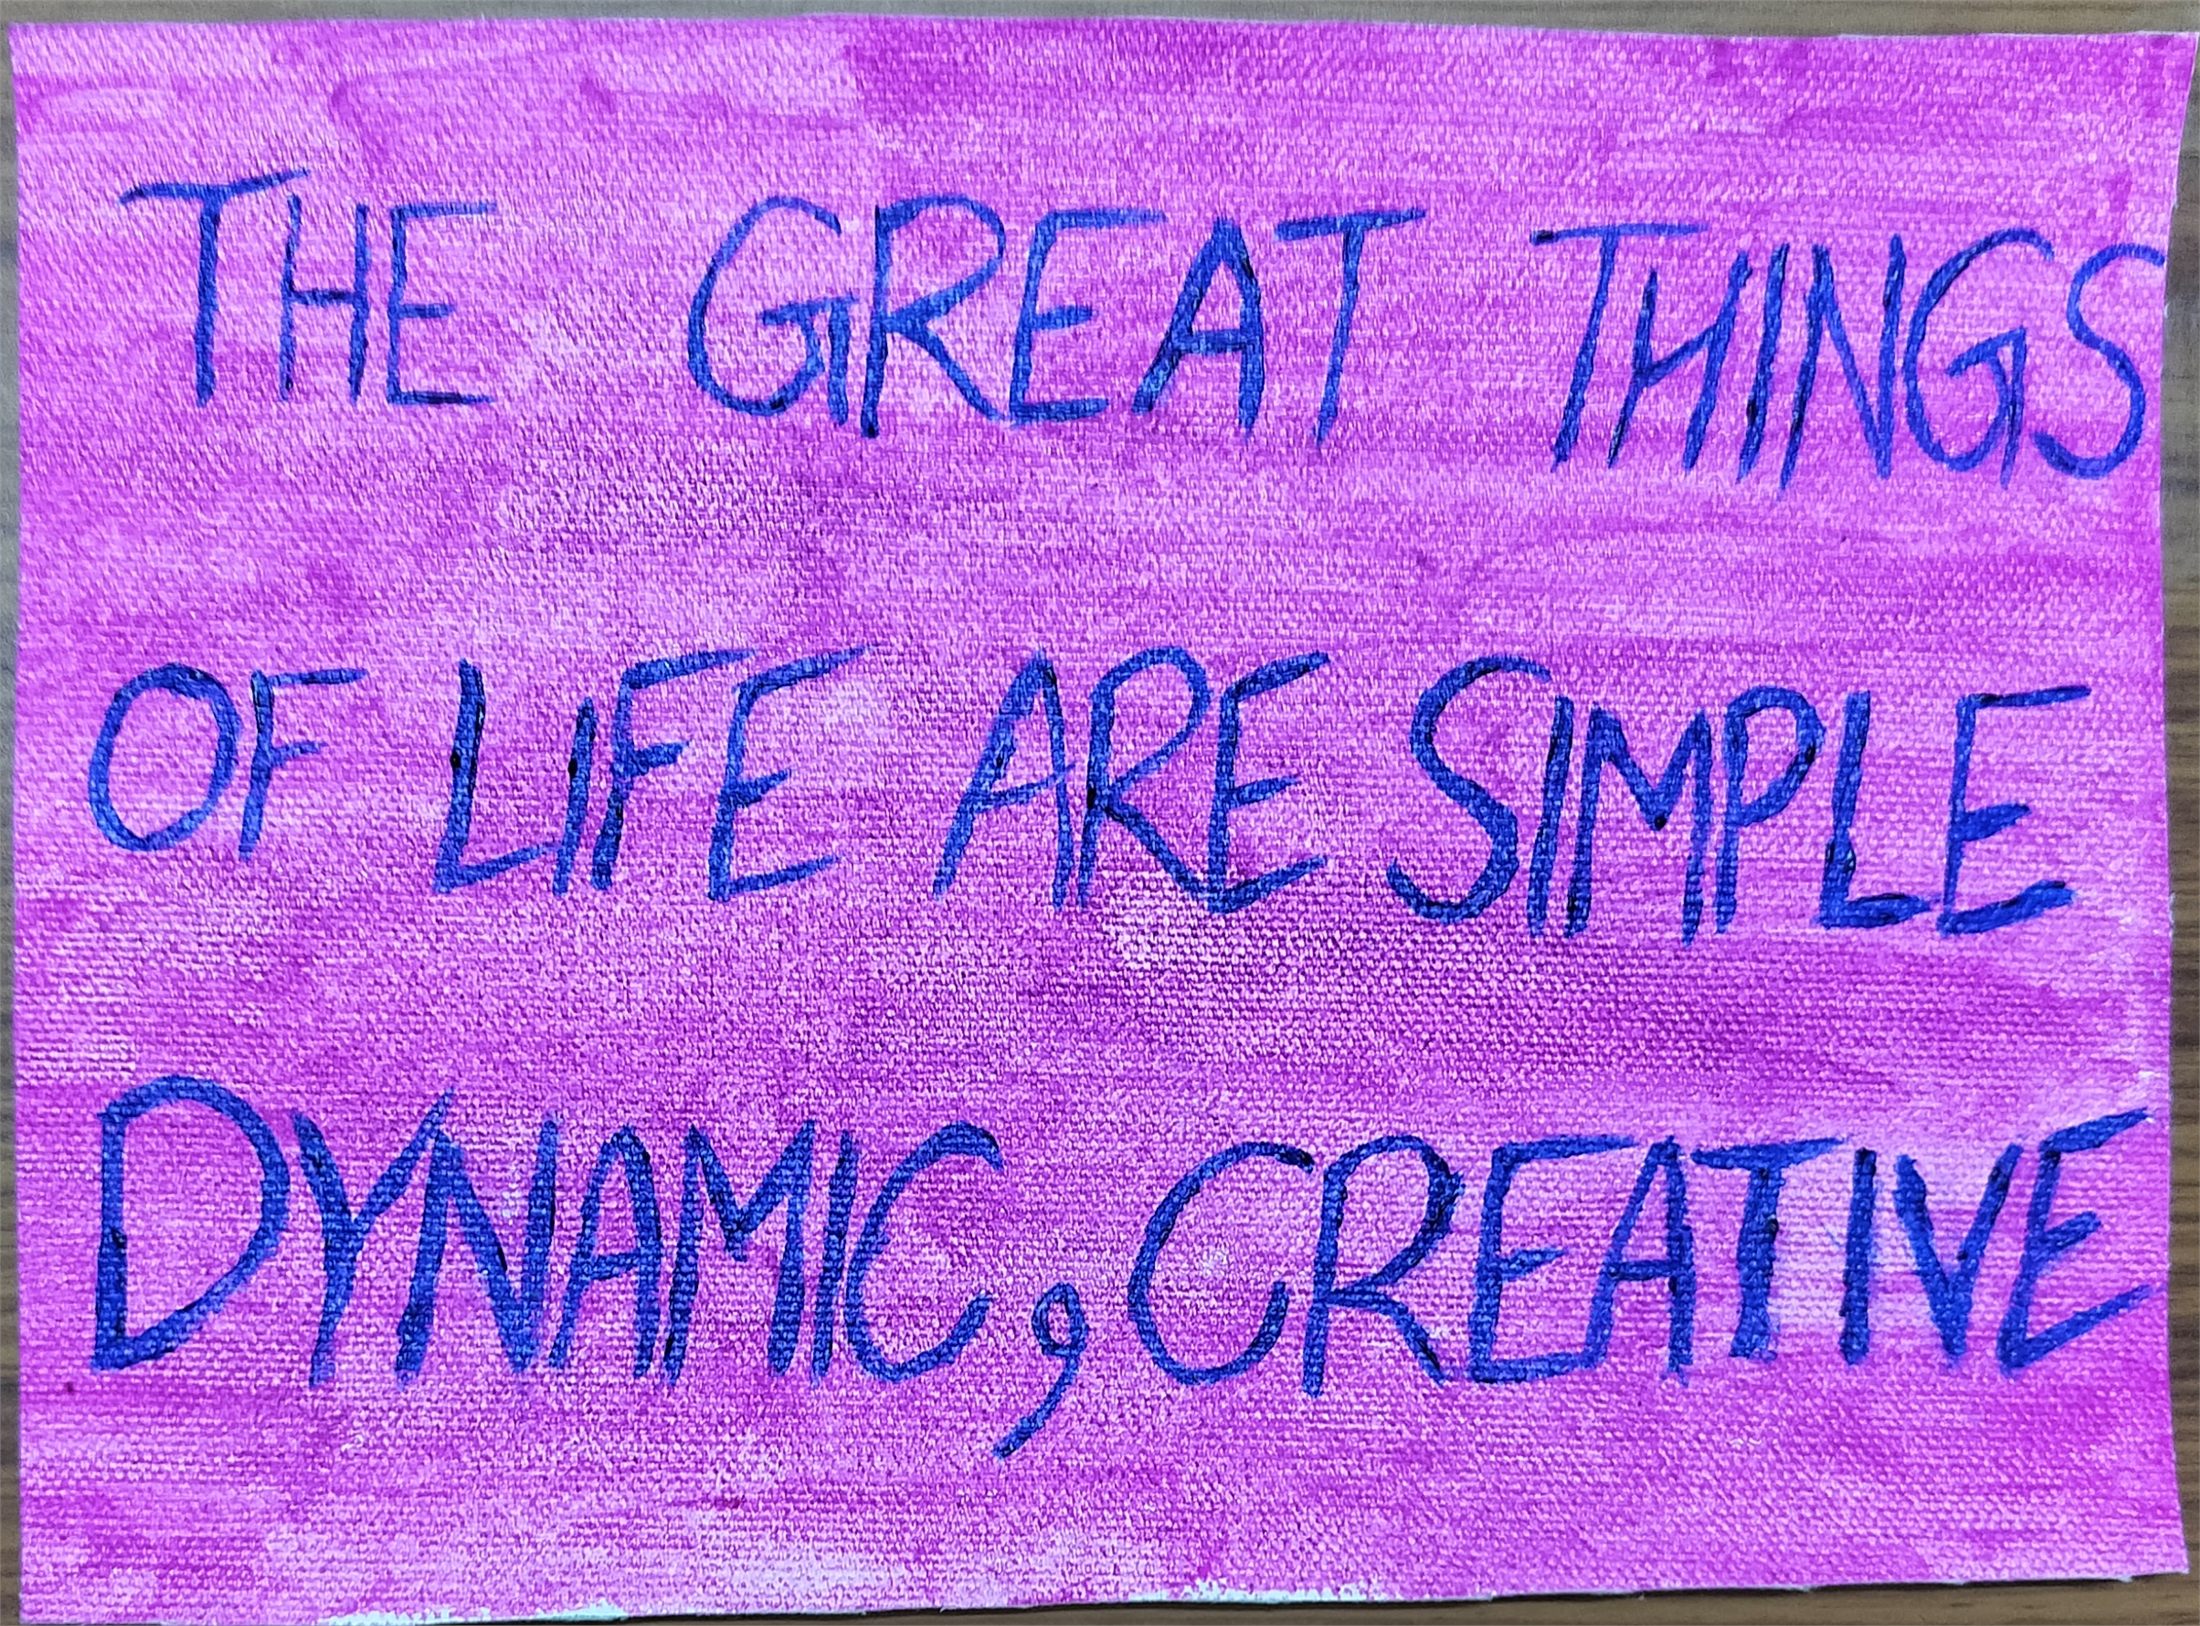 THE GREAT THINGS
OF LIFE ARE SIMPLE
DYNAMIC, CREATIVE